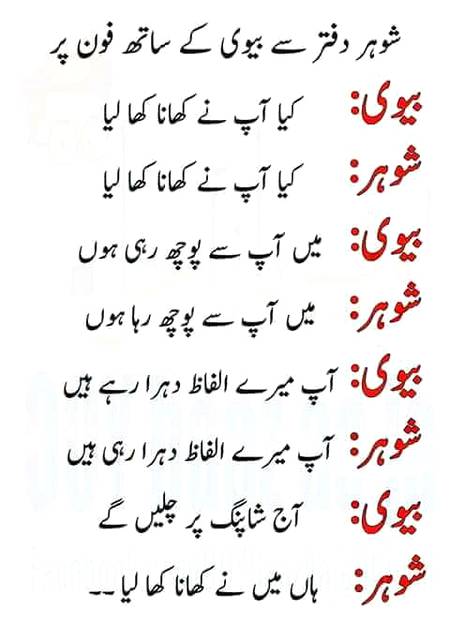 شوہر دفتر سے بیوی کے ساتھ فون پر
بیوی: کیا آپ نے کھانا کھا لیا
شوہر: کیا آپ نے کھانا کھا لیا
بیوی: میں آپ سے پوچھ رہی ہوں
شوہر: میں آپ سے پوچھ رہا ہوں
بیوی: آپ میرے الفاظ دہرا رہے ہیں
شوہر: آپ میرے الفاظ دہرا رہی ہیں
بیوی: آج شاپنگ پر چلیں گے
شوہر: ہاں میں نے کھانا کھا لیا --